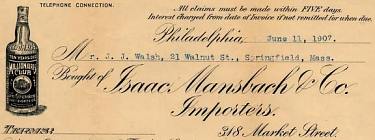 TELEPHONE CONNECTION.
All claims must be made within FIVE days.
Interest charged from date of Invoice if not remitted for when due.
Philadelphia, June 11, 1907.
Mr. J. J. Walsh, 21 Walnut St., Springfield, Mass.
Bought of Isaac Mansbach & Co.
Importers.
318 Market Street.
TEN YEARS OLD
MILLIONAIRE
CLUB
TERMS: